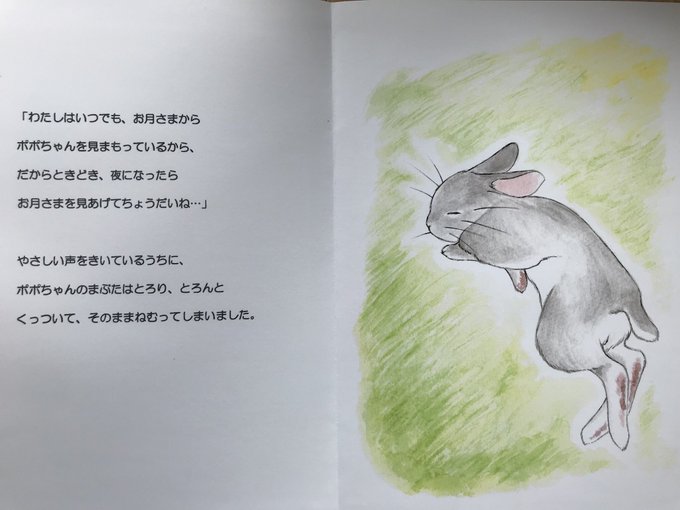 「わたしはいつでも、お月さまから
ポポちゃんを見まもっているから、
だからときどき、夜になったら
お月さまを見あげてちょうだいね…」
やさしい声をきいているうちに、
ポポちゃんのまぶたはとろり、とろんと
くっついて、そのままねむってしまいました。